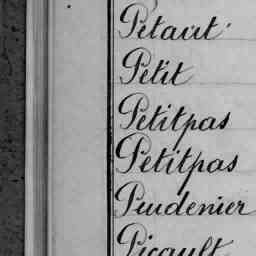 Petaut
Petit
Petitpas
Petitpas
Peudenier
Picault